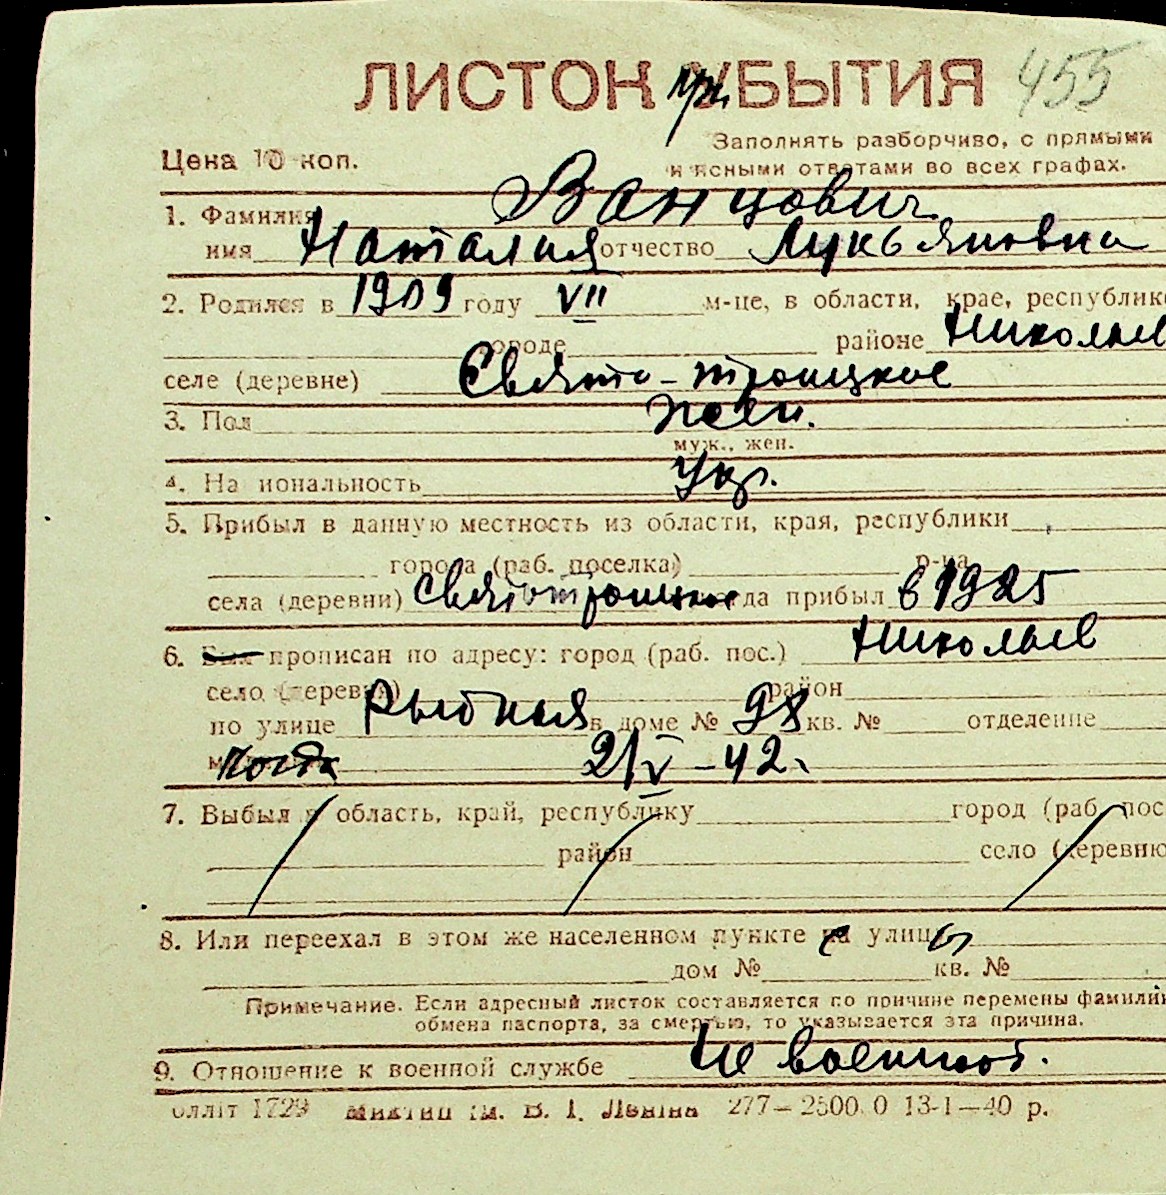 ЛИСТОК при БЫТИЯ 455
Заполнять разборчиво, с прямыми
Цена 10 коп. и ясными ответами во всех графах.
1. Фамилия Ванцович
имя Наталия отчество Лукьяновна
2. Родился в 1909 году VII м-це, в области, крае, республике
городе районе Николаев
селе (деревне) Свято-троицкое
3. Пол жен.
муж., жен.
4. Национальность Укр.
5. Прибыл в данную местность из области, края, республики
города (раб. поселка) р-на
села (деревни) Святотроицкое когда прибыл в 1925
6. Был прописан по адресу: город (раб. пос.) Николаев
село (деревня) район
по улице Рыбная в доме № 98 кв. № отделение
21/V-42.
7. Выбыл в область, край, республику город (раб. пос
район село (деревню
8. Или переехал в этом же населенном пункте с улицы
дом № кв. №
Примечание. Если адресный листок составляется по причине перемены фамилии
обмена паспорта, за смертью, то указывается эта причина.
9. Отношение к военной службе Не военноо.
Оллiт 1729 ім. В. І. Леніна 277—2500.0 13-1—40 р.